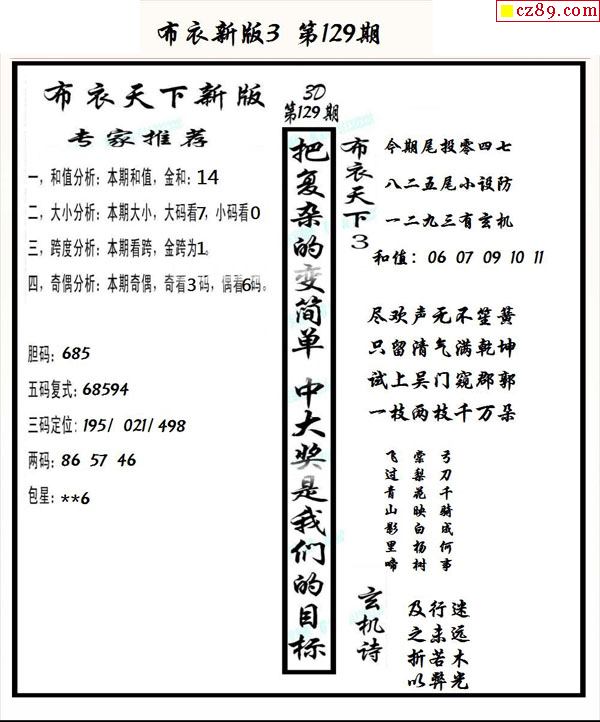 cz89.com
布衣新版3 第129期
布衣天下新版
专家推荐
一，和值分析：本期和值，金和：14
二，大小分析：本期大小，大码看7，小码看0
三，跨度分析：本期看跨，金跨为1。
四，奇偶分析：本期奇偶，奇看3码，偶看6码。
胆码：685
五码复式：68594
三码定位：195/ 021/ 498
两码：86 57 46
包星：**6
3D
第129期
把复杂的变简单 中大奖是我们的目标
布衣天下3
今期尾投零四七
八二五尾小设防
一二九三有玄机
和值：06 07 09 10 11
尽欢声无不笙簧
只留清气满乾坤
试上吴门窥郡郭
一枝两枝千万朵
弓刀千骑成何事
棠梨花映白杨树
飞过青山影里啼
玄机诗
及行迷
之未远
折若木
以弊光